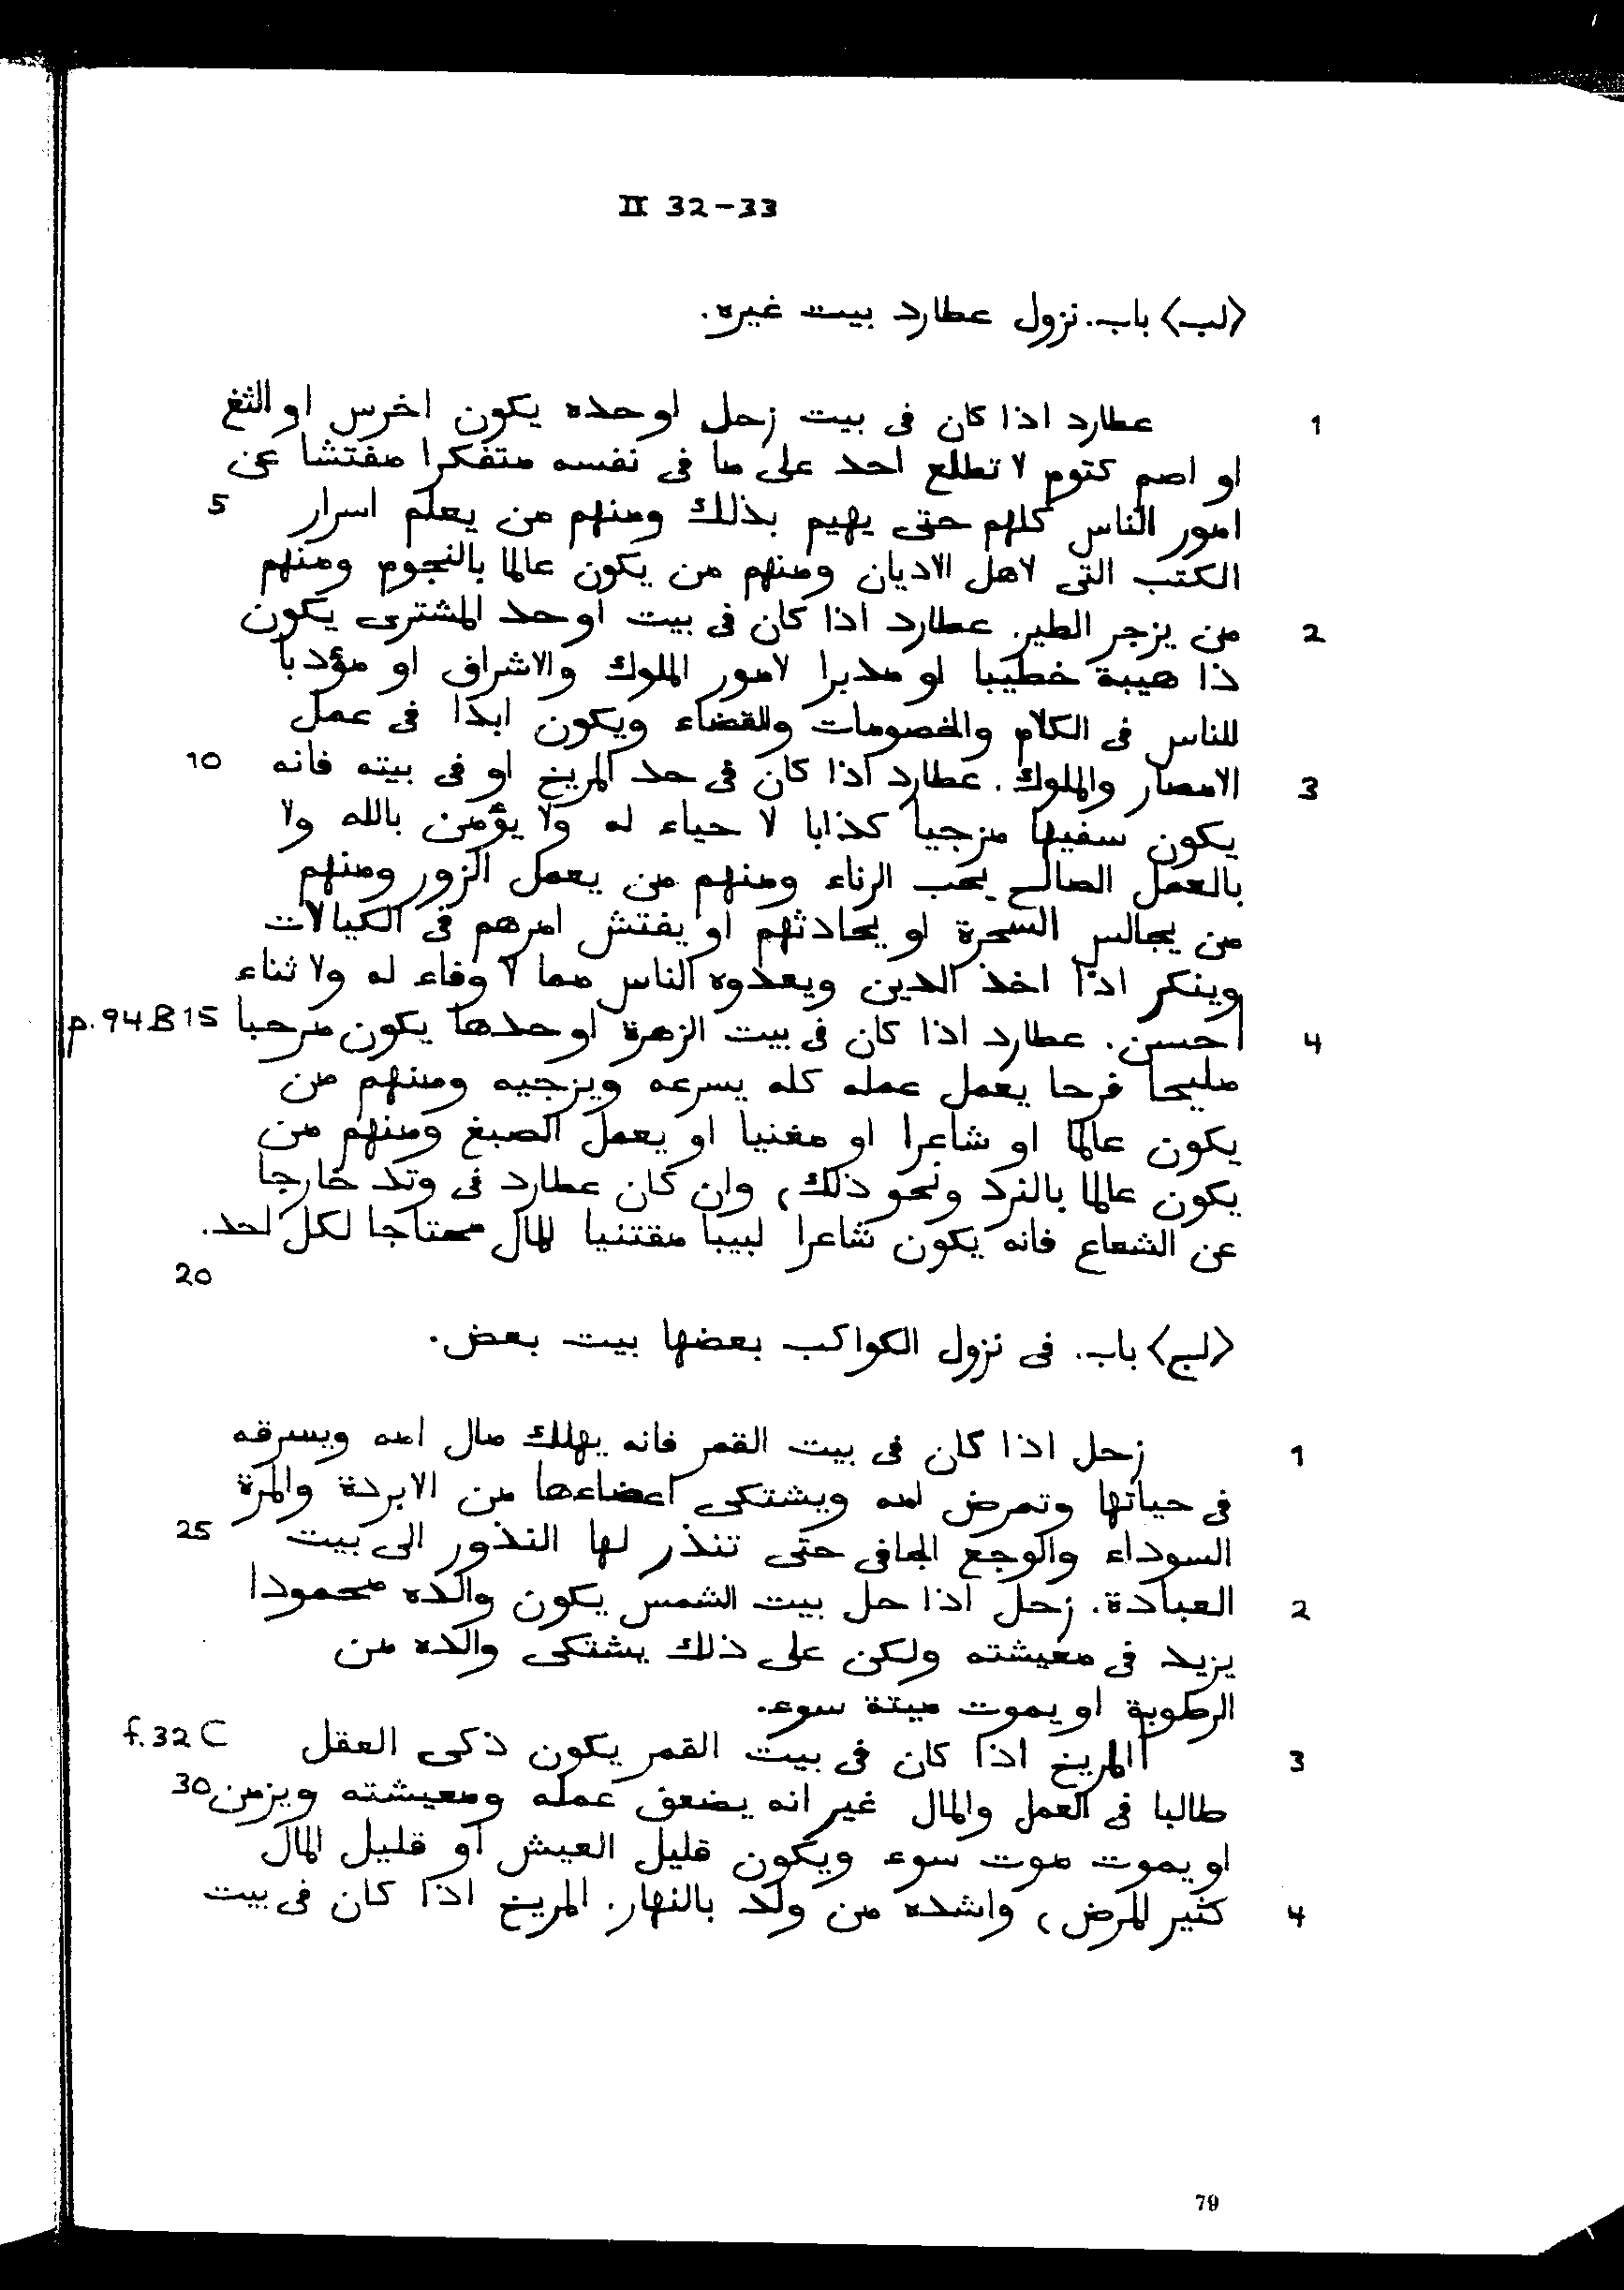 II 32-33
<لب> باب. نزول عطارد بيت غيره.
1 عطارد اذا كان فى بيت زحل او حده يكون اخرس او الثغ
او اصم كتوم لا تطلع احد على ما فى نفسه متفكرا مفتشا عن
امور الناس كلهم حتى يهيم بذلك ومنهم من يعلم اسرار 5
الكتب التى لاهل الاديان ومنهم من يكون عالما بالنجوم ومنهم
2 من يزجر الطير. عطارد اذا كان فى بيت او حد المشترى يكون
ذا هيبة خطيبا او مدبرا لامور الملوك والاشراف او مؤدبا
للناس فى الكلام والخصومات والقضاء ويكون ابدا فى عمل
3 الامصار والملوك. عطارد اذا كان فى حد المريخ او فى بيته فانه 10
يكون سفيها مزجيا كذابا لا حياء له ولا يؤمن بالله ولا
بالعمل الصالح يحب الزناء ومنهم من يعمل الزور ومنهم
من يجالس السحرة او يحادثهم او يفتش امرهم فى الكيالات
وينكر اذا اخذ الدين ويعدوه الناس مما لا وفاء له ولا ثناء
4 حسن. عطارد اذا كان فى بيت الزهرة او حدها يكون مرحبا 15 p.94B
مليحا فرحا يعمل عمله كله يسرعه ويزجيه ومنهم من
يكون عالما او شاعرا او مغنيا او يعمل الصبغ ومنهم من
يكون عالما بالنرد ونحو ذلك، وان كان عطارد فى وتد خارجا
عن الشعاع فانه يكون شاعرا لبيبا مقتنيا للمال محتاجا لكل احد.
20
<لج> باب. فى نزول الكواكب بعضها بيت بعض.
1 زحل اذا كان فى بيت القمر فانه يهلك مال امه ويسرقه
فى حياتها وتمرض امه ويشتكى اعضاءها من الابردة والمرة
السوداء والوجع الجافى حتى تنذر لها النذور الى بيت 25
2 العبادة. زحل اذا حل بيت الشمس يكون والده محمودا
يزيد فى معيشته ولكن على ذلك يشتكى والده من
الرطوبة او يموت ميتة سوء.
3 المريخ اذا كان فى بيت القمر يكون ذكى العقل f.32C
طالبا فى العمل والمال غير انه يضعف عمله ومعيشته ويزمن 30
او يموت موت سوء ويكون قليل العيش او قليل المال
4 كثير المرض، واشده من ولد بالنهار. المريخ اذا كان فى بيت
79